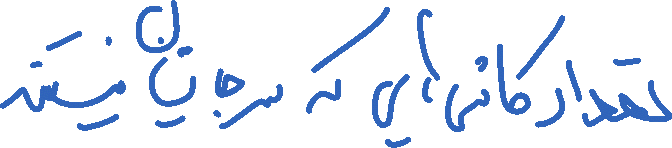 تعداد کاشی‌هایی که سر جایشان نیستند